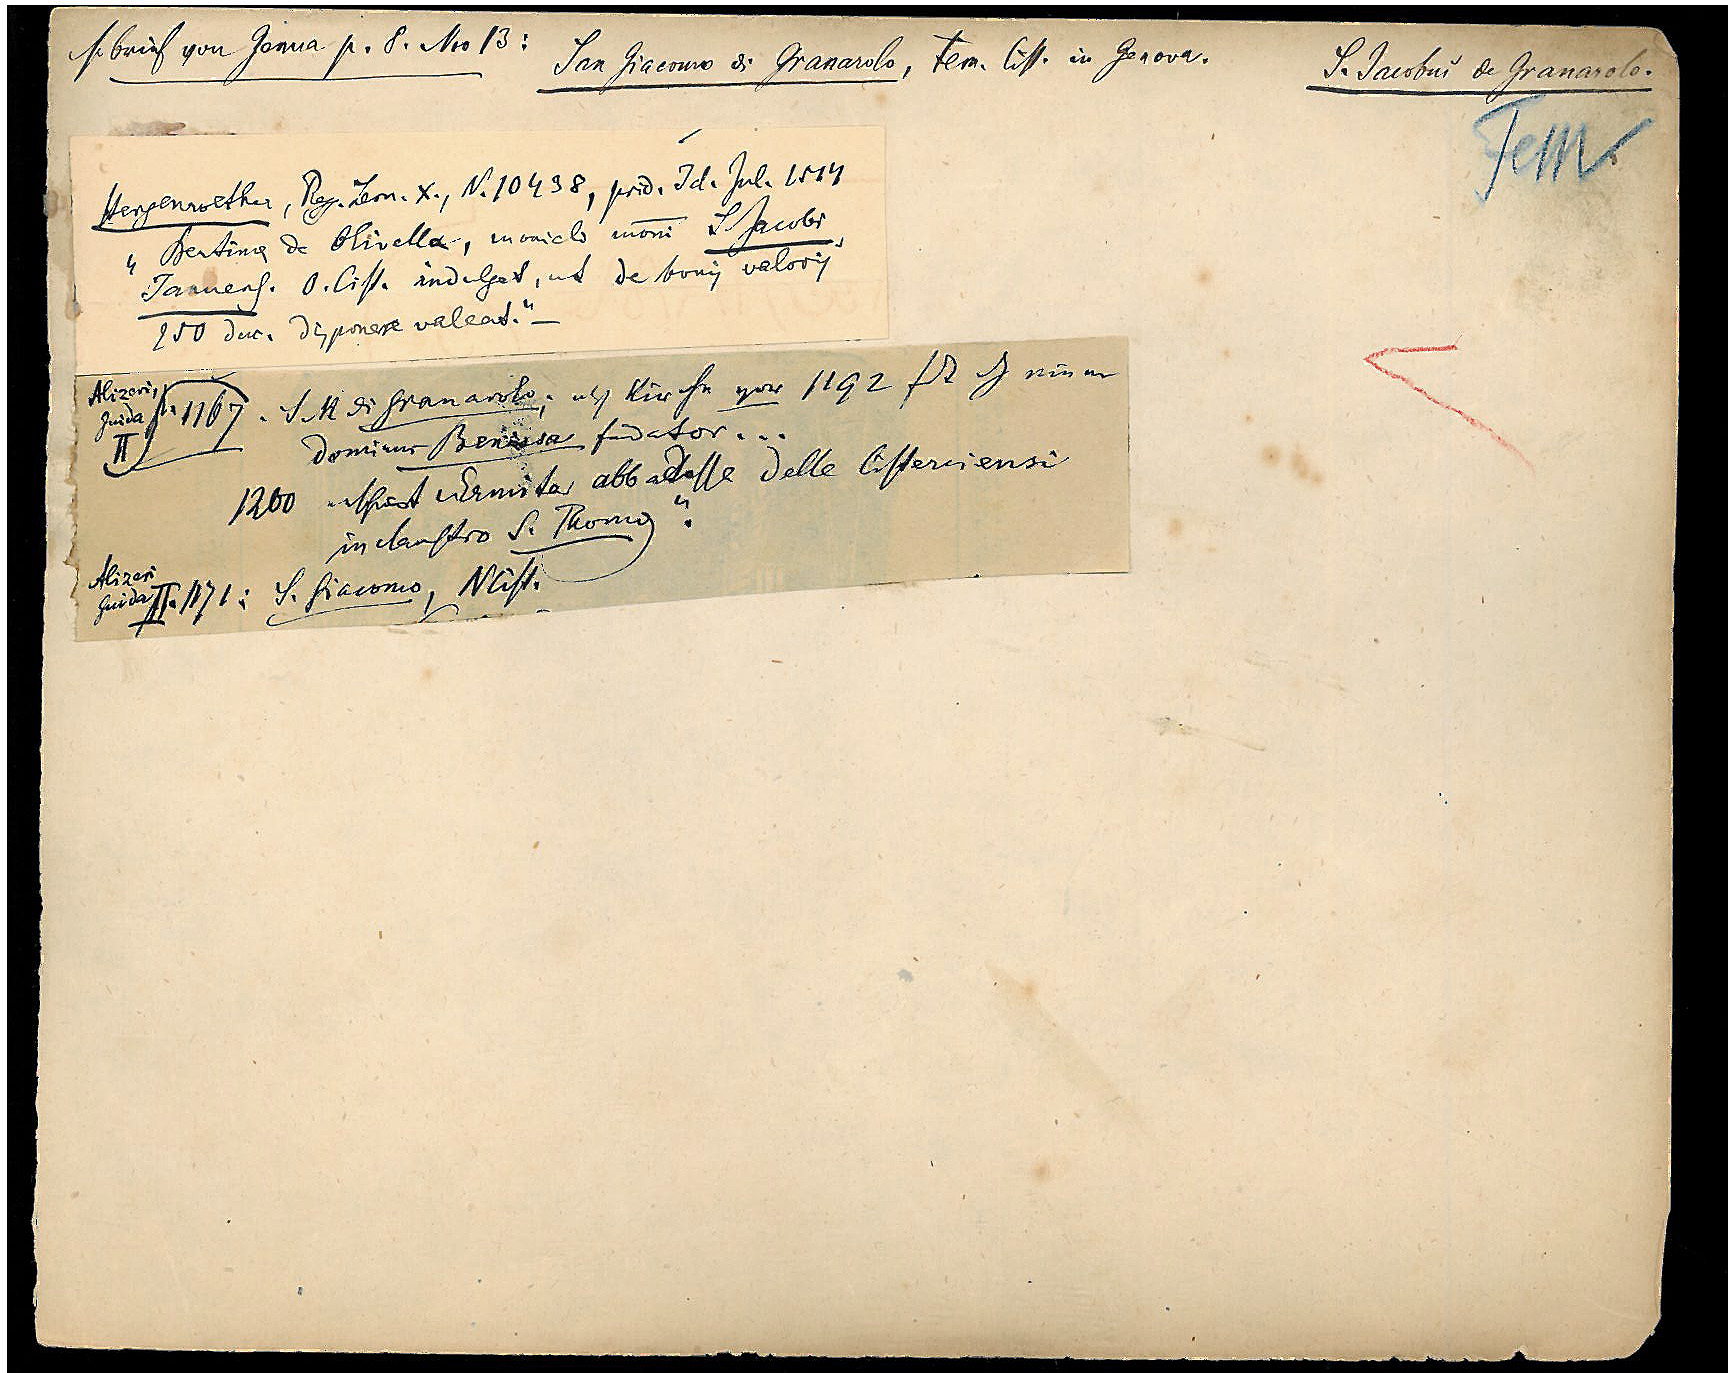 brief von Genua p. 8. No 13: San Giacomo di Granarolo, Fem. Cist. in Genova. S. Jacobus de Granarolo.
Fem
Hergenroether, Reg. Leon. X., N. 10438, prid. Id. Jul. 1514
„ Bentinę de Olivella, moniali moñi S. Jacobi
Januens. O. Cist. indulget, ut de bonis valoris
250 duc. disponere valeat."—
Alizeri, Guida II p. 1167. S. M di Granarolo, als Kirche vor 1192
dominus fūdator...
1200 abbadesse delle Cisterciensi
in claustro S. Thomę".
Alizeri Guida II. 1171: S. Giacomo, NCist.